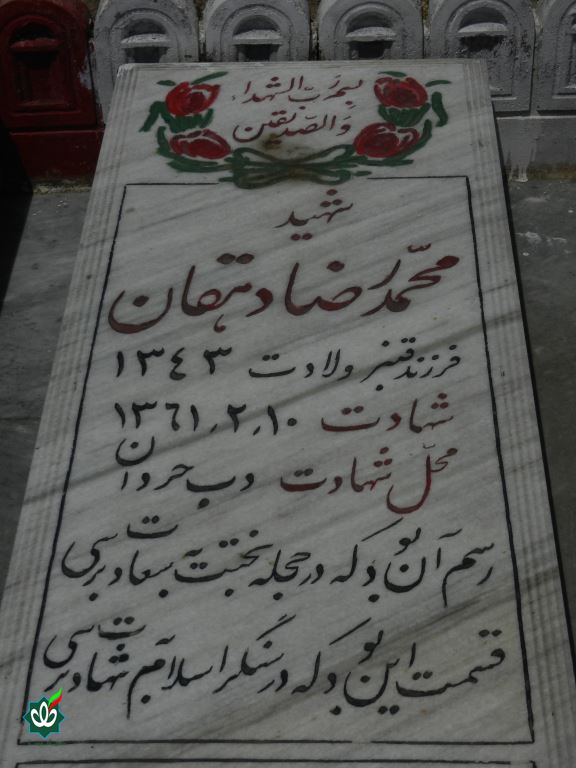 بسم ربّ الشهداء
والصّدیقین
شهید
محمّدرضا دهقان
فرزند قنبر ولادت ۱۳٤۳
شهادت ۱۰٫۲٫۱۳٦۱
محلّ شهادت دب حردان
رسم آن بود که در حجله بختت به سعادت برسی
قسمت این بود که در سنگر اسلام به شهادت برسی